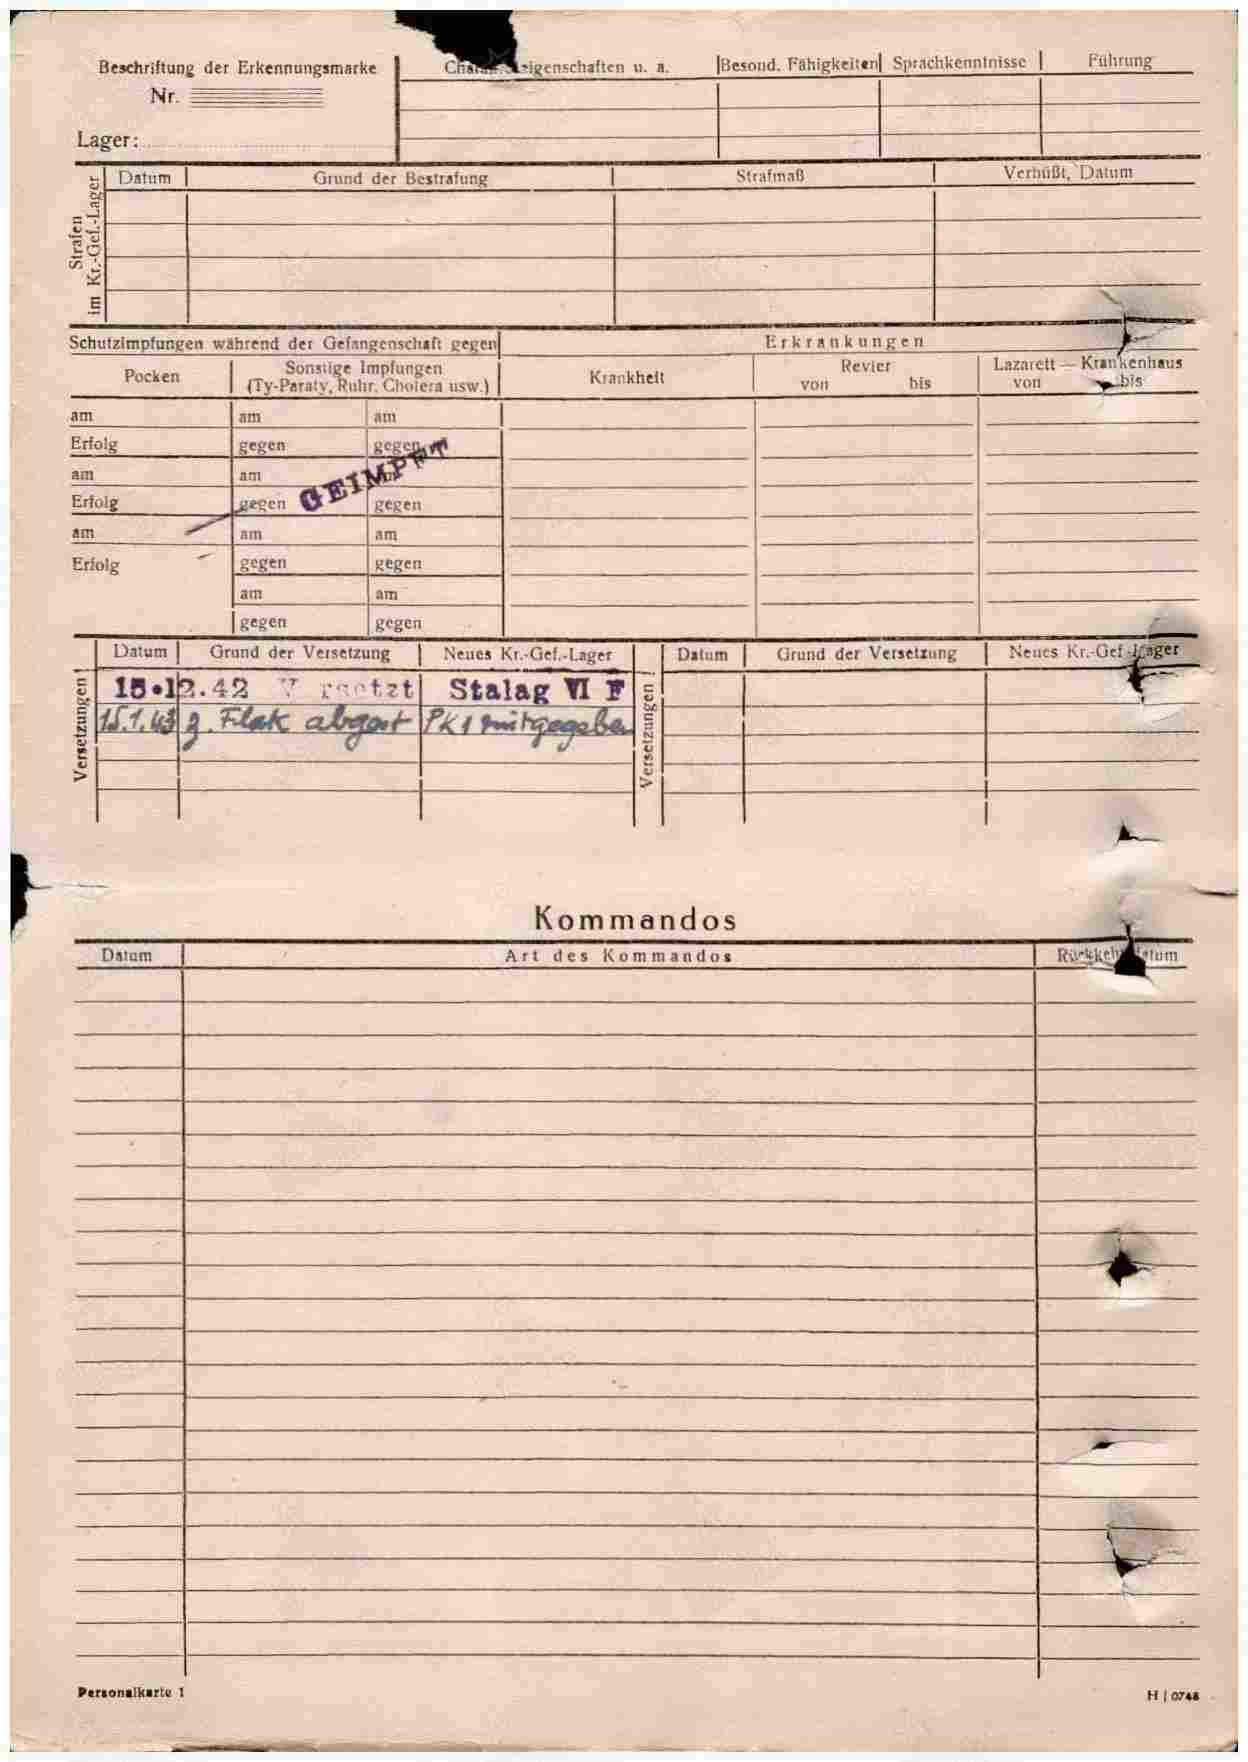 Beschriftung der Erkennungsmarke
Nr.
Lager:
eigenschaften u. a.
Besond. Fähigkeiten
Sprachkenntnisse
Führung
Strafen
im Kr.-Gef.-Lager
Datum
Grund der Bestrafung
Strafmaß
Verbüßt, Datum
Schutzimpfungen während der Gefangenschaft gegen
Erkrankungen
Pocken
Sonstige Impfungen
(Ty-Paraty, Ruhr, Cholera usw.)
Krankheit
Revier
von bis
Lazarett — Krankenhaus
von bis
am am am
Erfolg gegen gegen
am am
Erfolg gegen gegen
GEIMPFT
am am am
Erfolg gegen gegen
am am
gegen gegen
Versetzungen
Datum Grund der Versetzung Neues Kr.-Gef.-Lager
15.12.42 V rsetzt Stalag VI F
15.1.43 z. Flak abgest PK1 mitgegeben
Versetzungen
Datum Grund der Versetzung Neues Kr.-Gef.-Lager
Kommandos
Datum Art des Kommandos Rückkehrdatum
Personalkarte 1
H | 0748